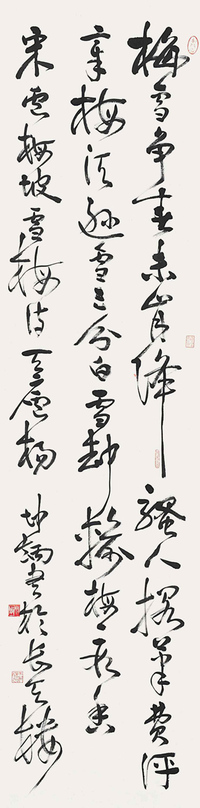 梅雪争春未肯降骚人搁笔费评
章梅须逊雪三分白雪却输梅一段香
宋卢梅坡雪梅诗天庐杨坤炳书于长天楼